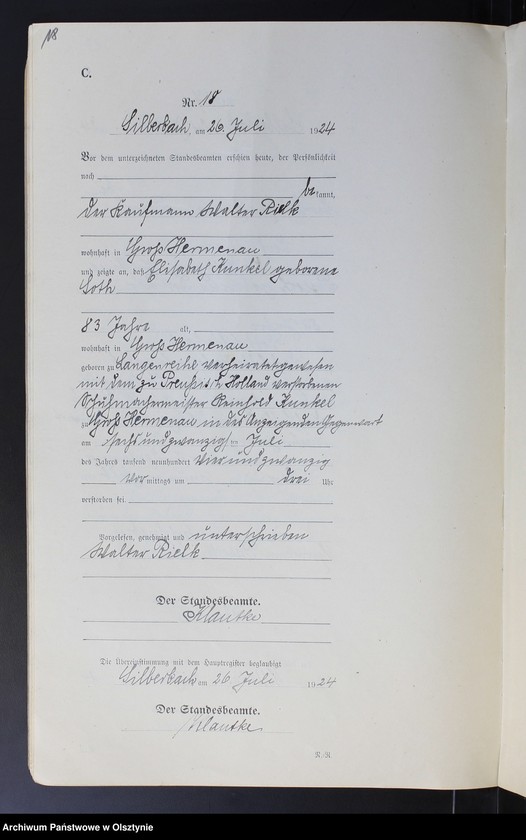 118
C.
Nr. 18
Silberbach, am 26 Juli 1924
Vor dem unterzeichneten Standesbeamten erschien heute, der Persönlichkeit
nach
bekannt,
der Kaufmann Walter Rielk
wohnhaft in Groß Hermenau
und zeigte an, daß Elisabeth Kunkel geborene
Soth
83 Jahre alt,
wohnhaft in Groß Hermenau
geboren zu Langenreihe verheiratet gewesen
mit dem zu Preußisch Holland verstorbenen
Schuhmachermeister Reinhold Kunkel
zu Groß Hermenau in des Anzeigenden Gegenwart
am sechsundzwanzig ten Juli
des Jahres tausend neunhundert vierundzwanzig
vor mittags um drei Uhr
verstorben sei.
Vorgelesen, genehmigt und unterschrieben
Walter Rielk
Der Standesbeamte.
Klautke
Die Übereinstimmung mit dem Hauptregister beglaubigt
Silberbach am 26 Juli 1924
Der Standesbeamte.
Klautke
Archiwum Państwowe w Olsztynie